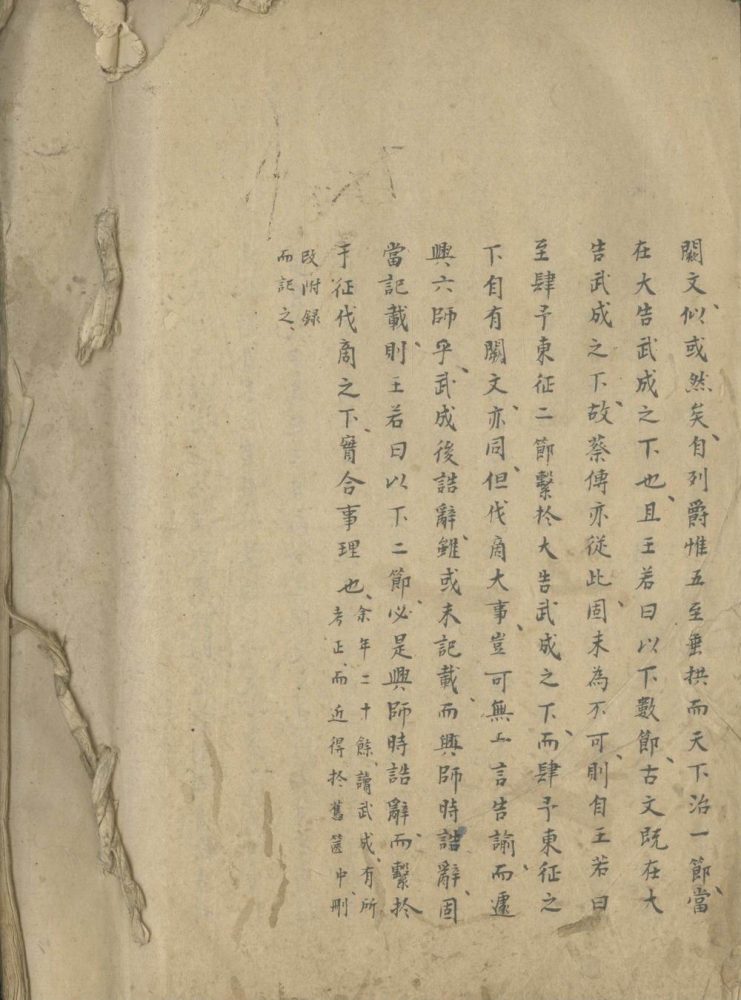 闕文、似或然矣、自列爵惟五至垂拱而天下治一節、當
在大告武成之下也、且王若曰以下數節、古文既在大
告武成之下、故蔡傳亦從此、固未為不可、則自王若曰
至肆予東征二節繫於大告武成之下、而肆予東征之
下自有闕文、亦同、但伐商大事、豈可無一言告諭、而遽
興六師乎、武成後誥辭雖或未記載、而興師時誥辭、固
當記載、則王若曰以下二節、必是興師時誥辭、而繫於
于征伐商之下、實合事理也、余年二十餘、讀武成、有所
考正、而近得於舊篋中、刪
改附錄
而記之、